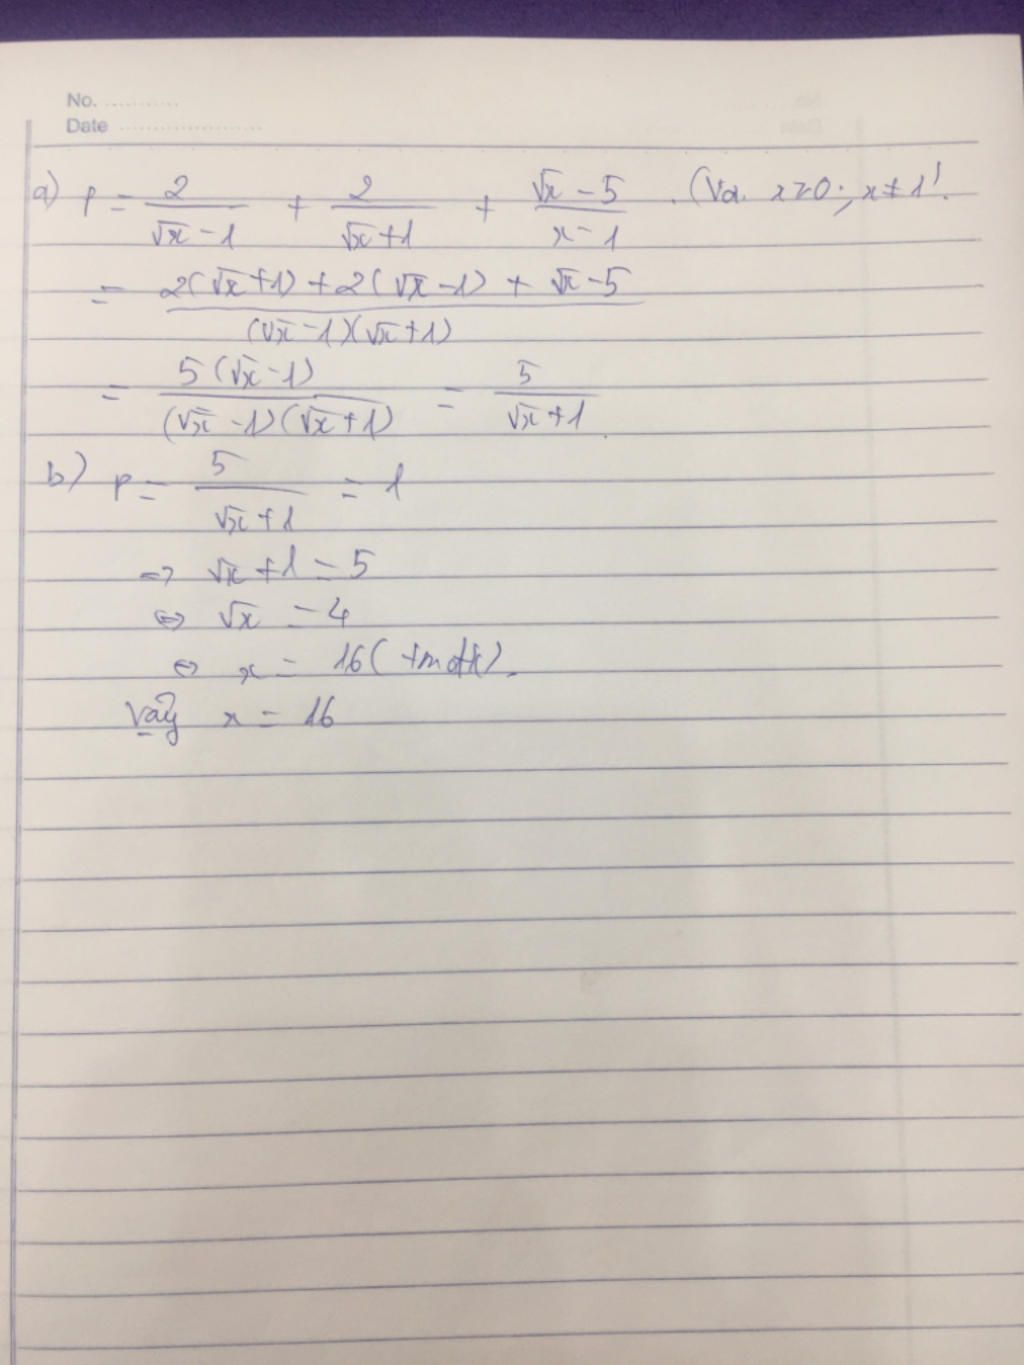 No. ...........
Date ......................
a) P = 2/(√x - 1) + 2/(√x + 1) + (√x - 5)/(x - 1) . (Vơi x>0; x≠1)
= (2(√x+1) + 2(√x-1) + √x-5)/((√x-1)(√x+1))
= (5(√x-1))/((√x-1)(√x+1)) = 5/(√x+1).
b) P = 5/(√x+1) = 1
=> √x+1 = 5
<=> √x = 4
<=> x = 16 (tmđk).
Vậy x = 16